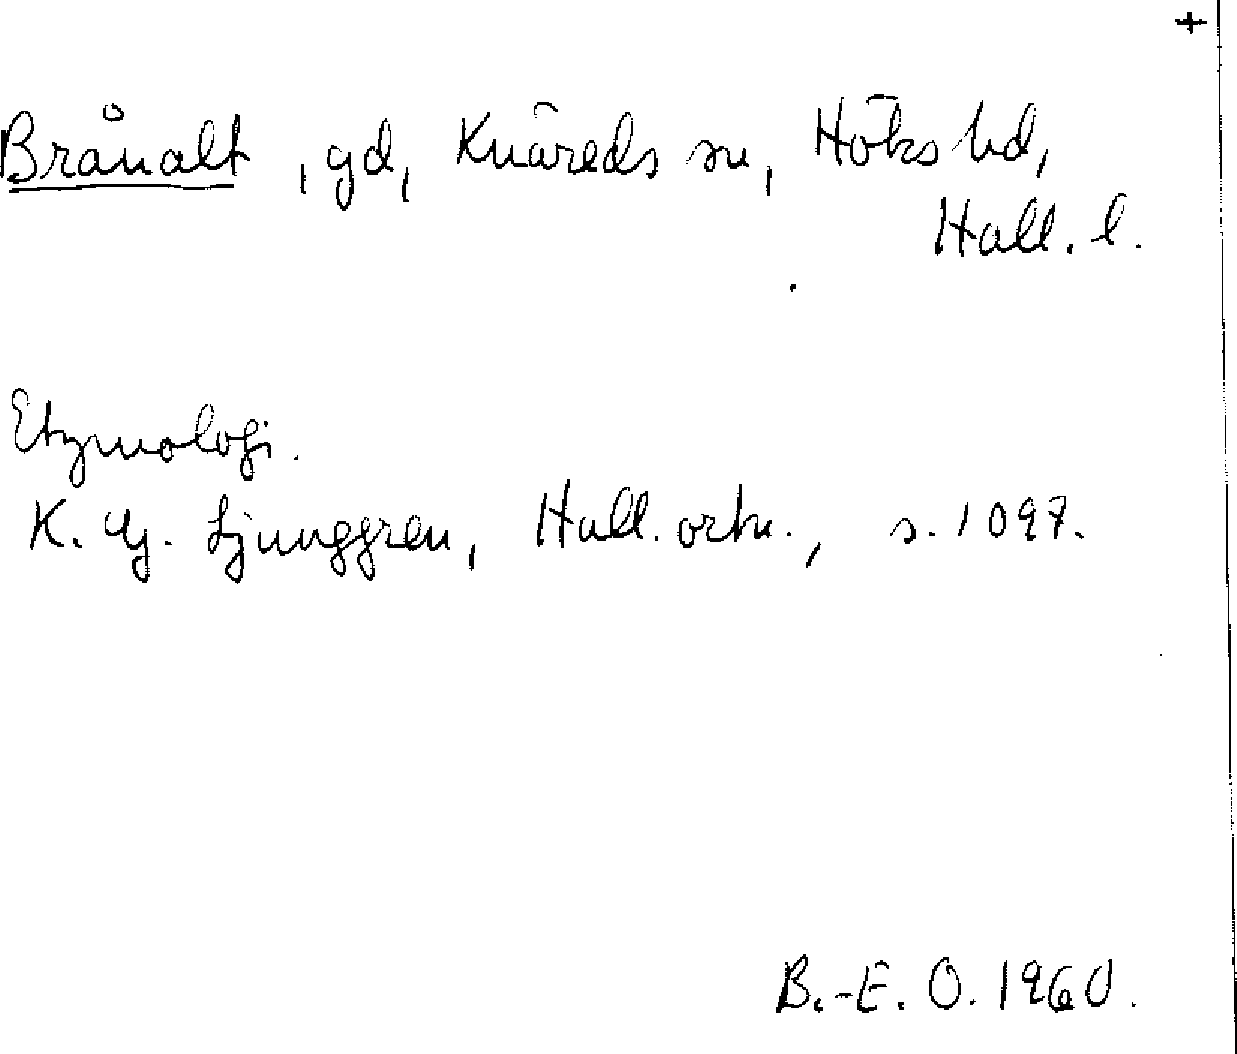 +
Brånalt, gd, Knäreds sn, Höks hd,
Hall. l.
Etymologi.
K. G. Ljunggren, Hall. ortn., s. 1097.
B.-E. O. 1960.